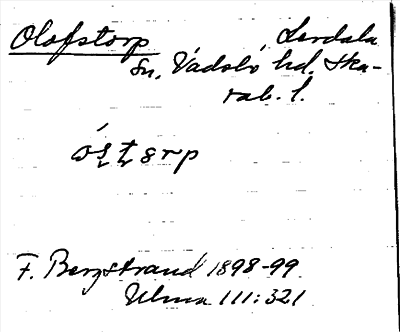 Olofstorp Lerdala
sn, Vadsbo hd. Ska-
rab. l.
F. Bergstrand 1898-99
Ulma 111:321